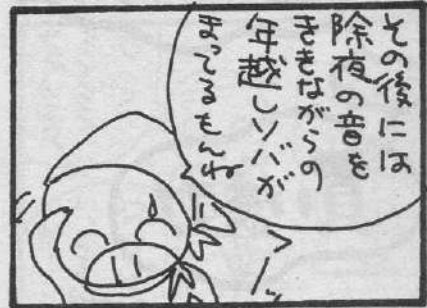 その後には
除夜の音を
ききながらの
年越しソバが
まってるもんね